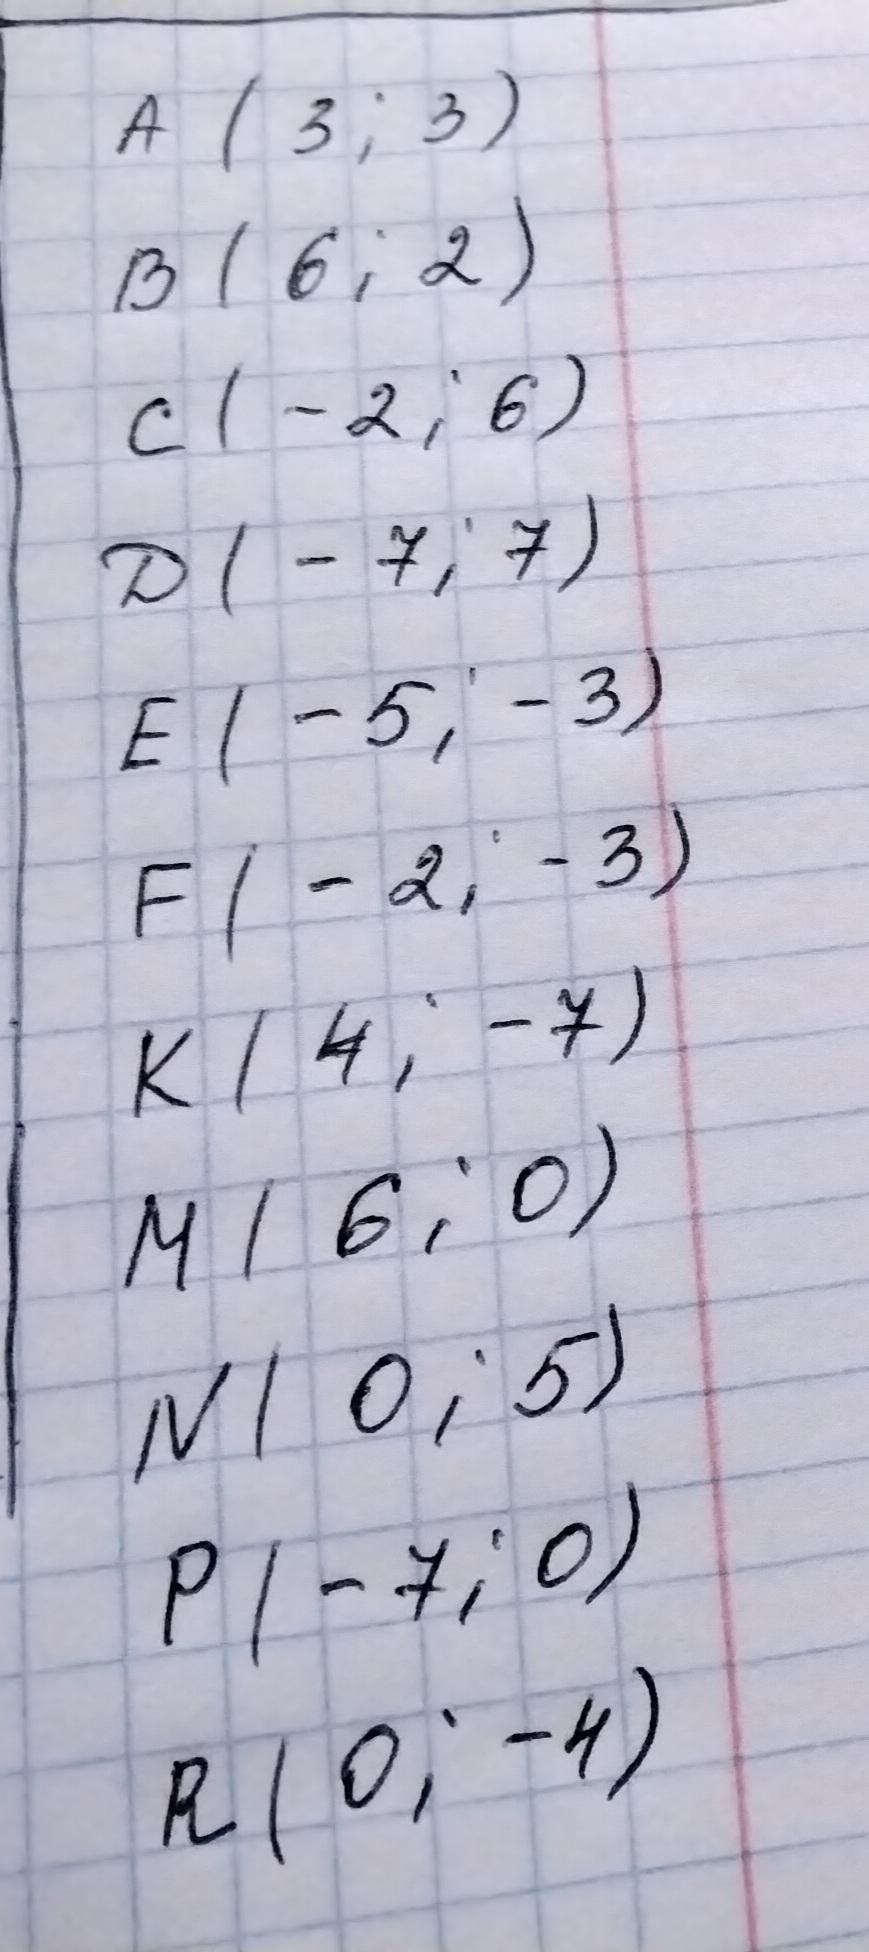 A ( 3 ; 3 )
B ( 6 ; 2 )
C ( - 2 ; 6 )
D ( - 7 ; 7 )
E ( - 5 ; - 3 )
F ( - 2 ; - 3 )
K ( 4 ; - 7 )
M ( 6 ; 0 )
N ( 0 ; 5 )
P ( - 7 ; 0 )
R ( 0 ; - 4 )